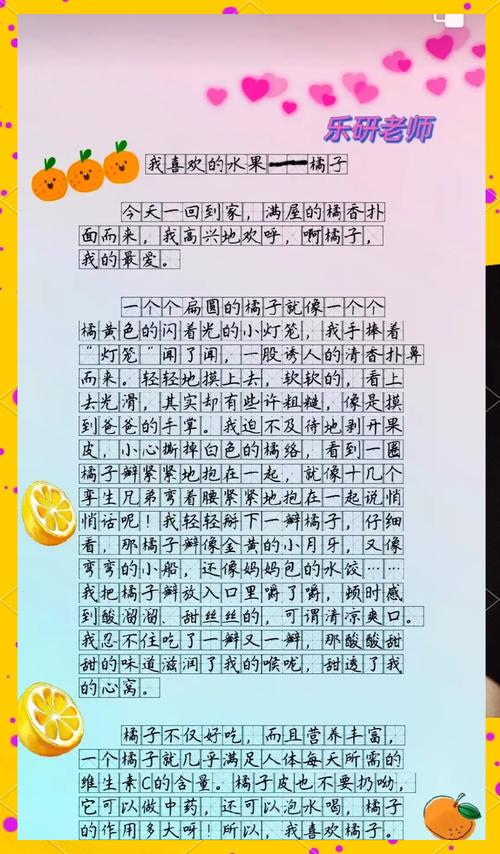 乐研老师
我喜欢的水果——橘子
今天一回到家，满屋的橘香扑
面而来，我高兴地欢呼，啊橘子，
我的最爱。
一个个扁圆的橘子就像一个个
橘黄色的闪着光的小灯笼，我手捧着
“灯笼”闻了闻，一股诱人的清香扑鼻
而来。轻轻地摸上去，软软的，看上
去光滑，其实却有些许粗糙，像是摸
到爸爸的手掌。我迫不及待地剥开果
皮，小心撕掉白色的橘络，看到一圈
橘子瓣紧紧地抱在一起，就像十几个
孪生兄弟弯着腰紧紧地抱在一起说悄
悄话呢！我轻轻掰下一瓣橘子，仔细
看，那橘子瓣像金黄的小月牙，又像
弯弯的小船，还像妈妈包的水饺……
我把橘子瓣放入口里嚼了嚼，顿时感
到酸溜溜、甜丝丝的，可谓清凉爽口。
我忍不住吃了一瓣又一瓣，那酸酸甜
甜的味道滋润了我的喉咙，甜透了我
的心窝。
橘子不仅好吃，而且营养丰富，
一个橘子就几乎满足人体每天所需的
维生素C的含量。橘子皮也不要扔呦，
它可以做中药，还可以泡水喝，橘子
的作用多大呀！所以，我喜欢橘子。